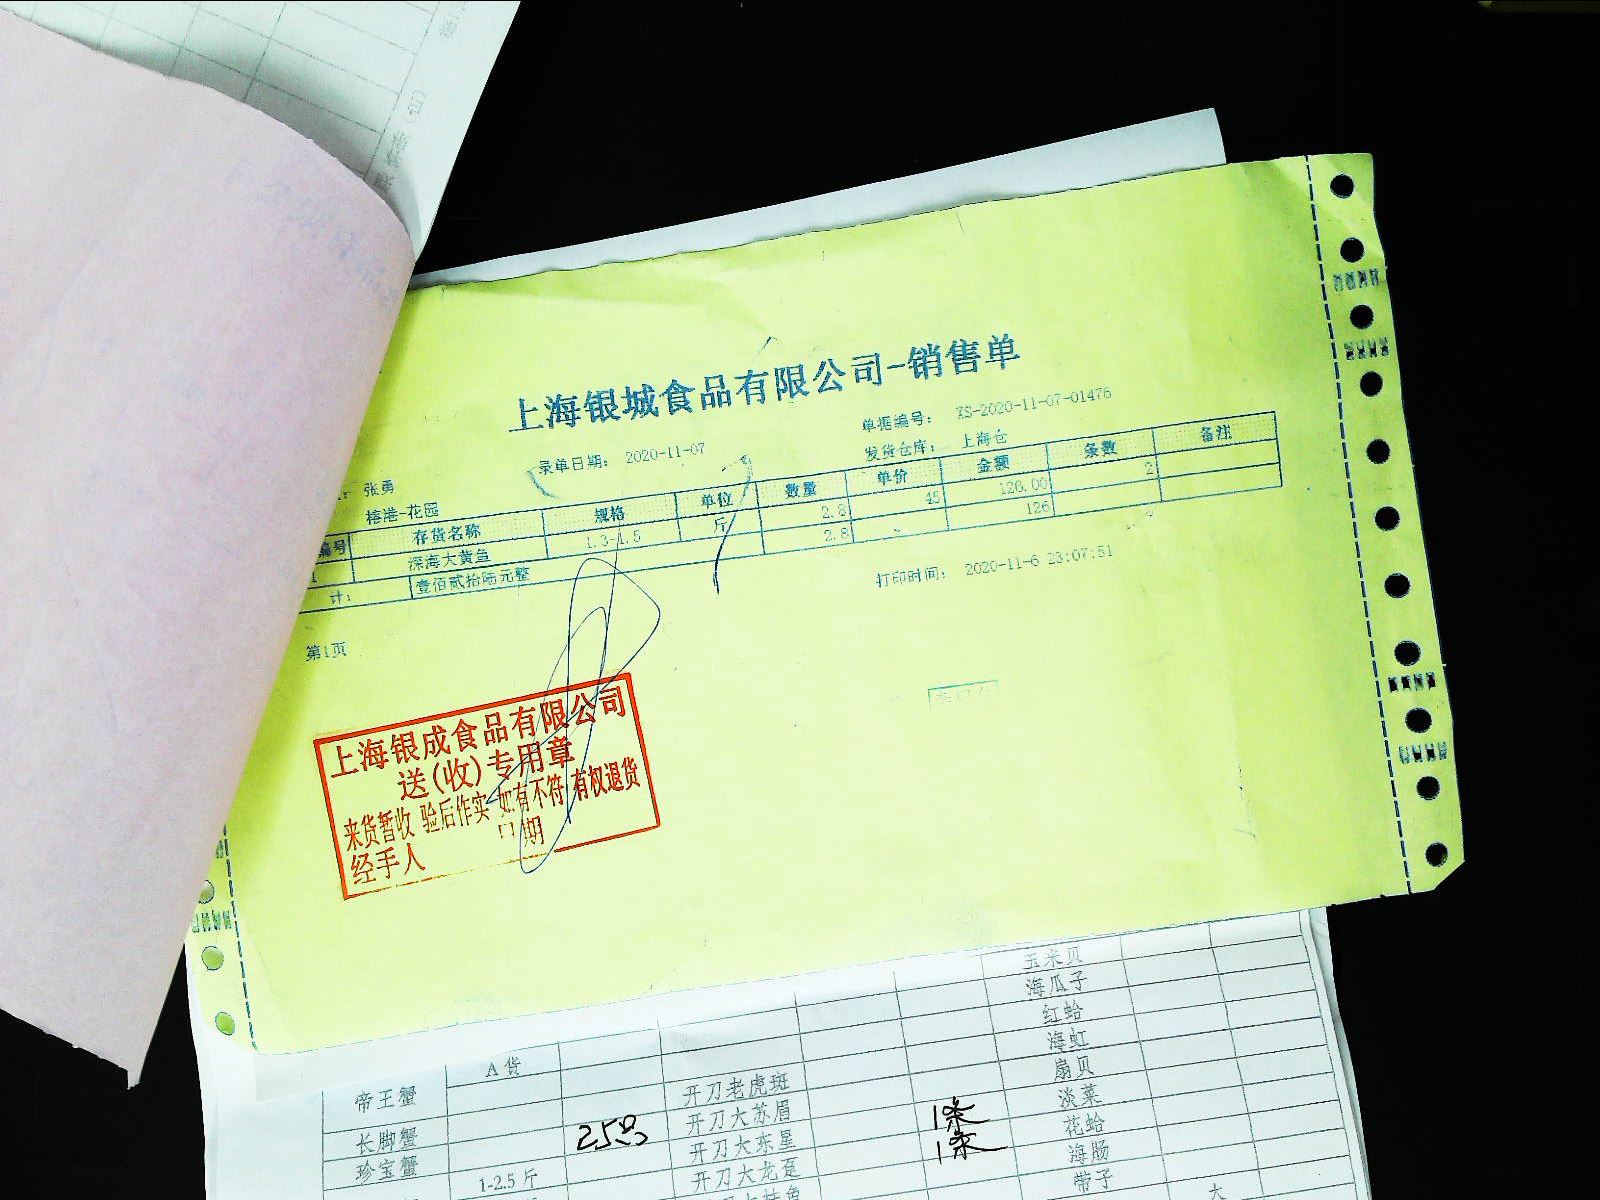 上海银城食品有限公司-销售单
录单日期： 2020-11-07
单据编号： XS-2020-11-07-01476
发货仓库： 上海仓
张勇
榕港-花园
编号 存货名称 规格 单位 数量 单价 金额 条数 备注
1 深海大黄鱼 1.3-1.5 斤 2.8 45 126.00 2
计： 壹佰贰拾陆元整 2.8 126
打印时间： 2020-11-6 23:07:51
第1页
上海银成食品有限公司
送(收)专用章
来货暂收 验后作实 如有不符 有权退货
经手人 日期
玉米贝
海瓜子
红蛤
海虹
扇贝
A 货
帝王蟹 开刀老虎斑 淡菜
开刀大苏眉 1条 花蛤
长脚蟹 开刀大东星 1条 海肠
珍宝蟹 1-2.5 斤 开刀大龙趸 带子
大